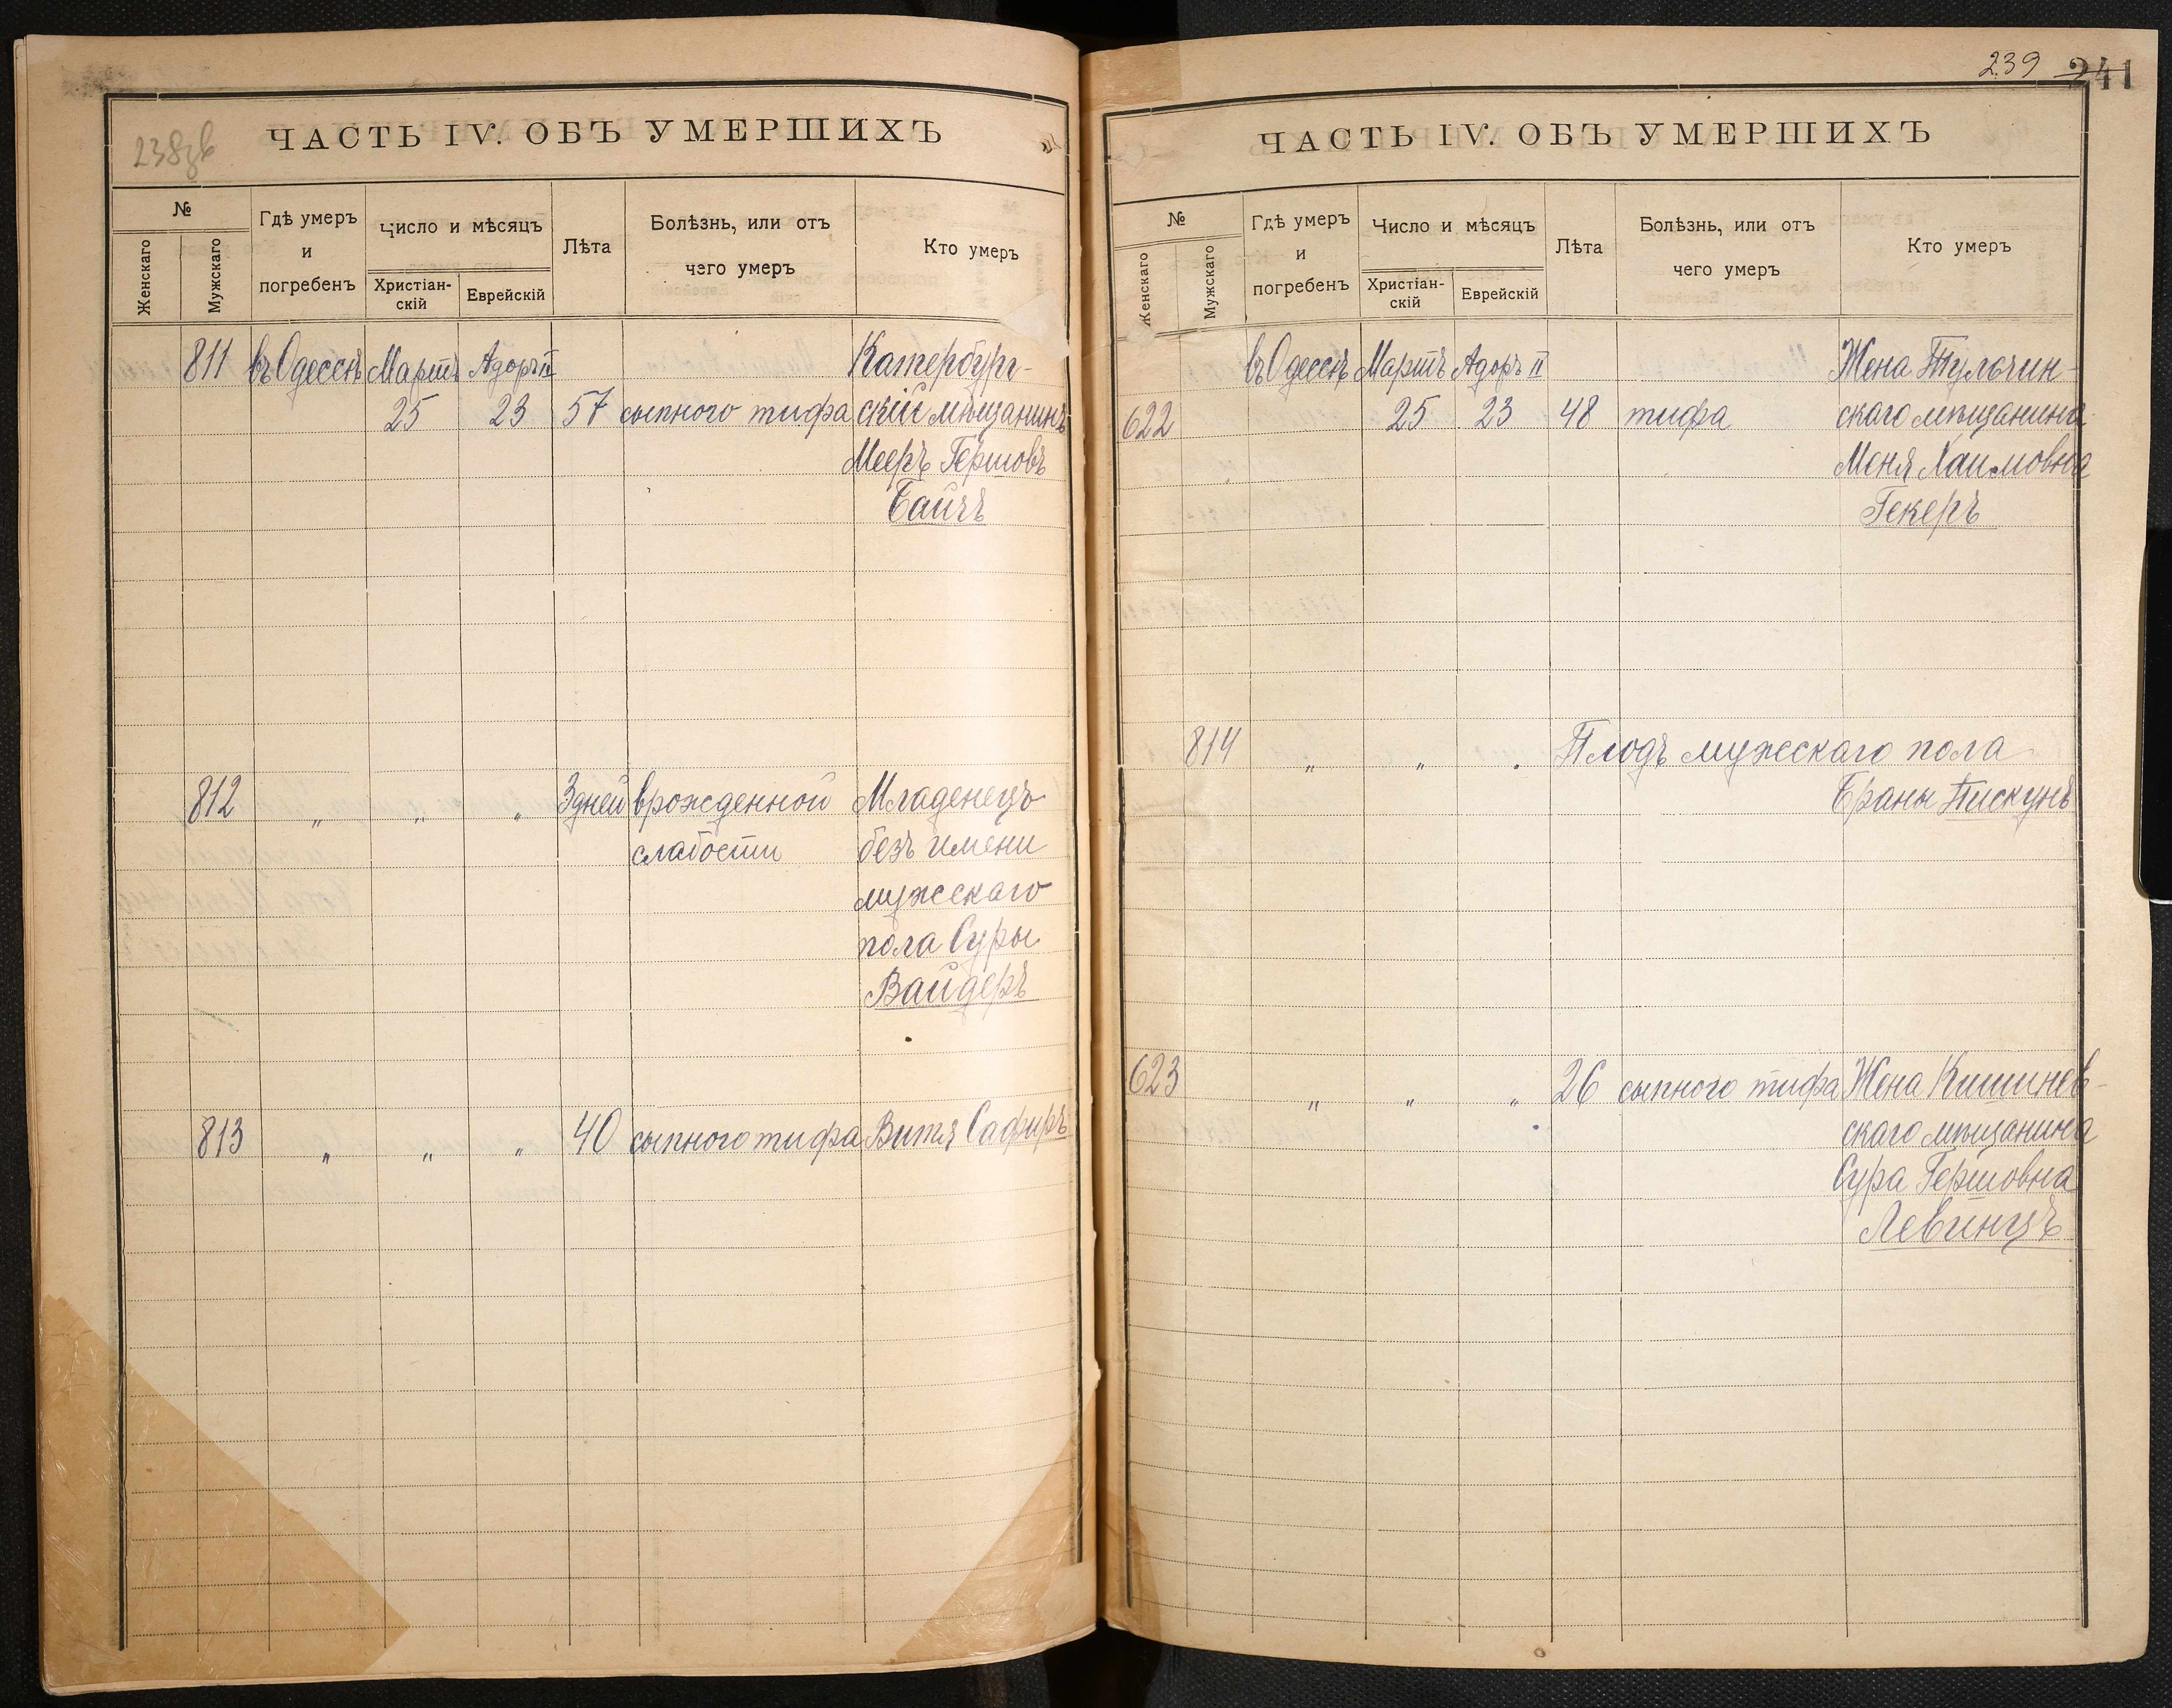 238зв
ЧАСТЬ IV. ОБЪ УМЕРШИХЪ
№
Женскаго
Мужскаго
Гдѣ умеръ
и
погребенъ
Число и мѣсяцъ
Христіан-
скій
Еврейскій
Лѣта
Болѣзнь, или отъ
чего умеръ
Кто умеръ
811 въ Одессѣ Мартъ Адоръ II Катербург-
25 23 57 сыпного тифа скій мѣщанинъ
Мееръ Гершовъ
Байчъ
812 „ „ „ 3 дней врожденной Младенецъ
слабости безъ имени
мужескаго
пола Суры
Вайдеръ
813 „ „ „ 40 сыпного тифа Витя Сафиръ
239 241
ЧАСТЬ IV. ОБЪ УМЕРШИХЪ
№
Женскаго
Мужскаго
Гдѣ умеръ
и
погребенъ
Число и мѣсяцъ
Христіан-
скій
Еврейскій
Лѣта
Болѣзнь, или отъ
чего умеръ
Кто умеръ
въ Одессѣ Мартъ Адоръ II Жена Тульчин-
622 25 23 48 тифа скаго мѣщанина
Меня Хаимовна
Гекеръ
814 „ „ „ Плодъ мужескаго пола
Браны Пискунъ
623 „ „ „ 26 сыпного тифа Жена Кишинев-
скаго мѣщанина
Сура Гершовна
Левинцъ